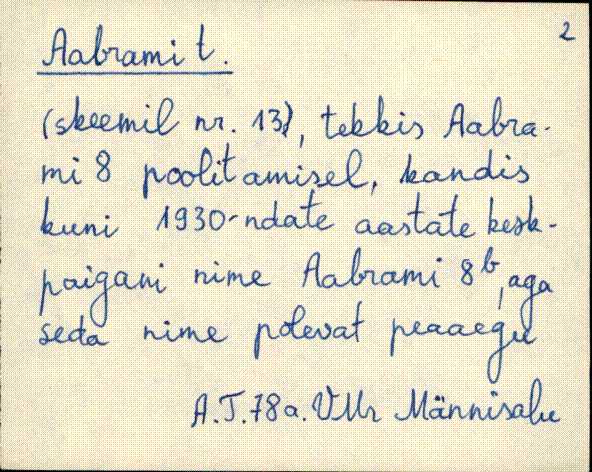 2
Aabrami t.
(skeemil nr. 13), tekkis Aabra-
mi 8 poolitamisel, kandis
kuni 1930-ndate aastate kesk-
paigani nime Aabrami 8b, aga
seda nime polevat peaaegu
A.T.78a. VMr Männisalu